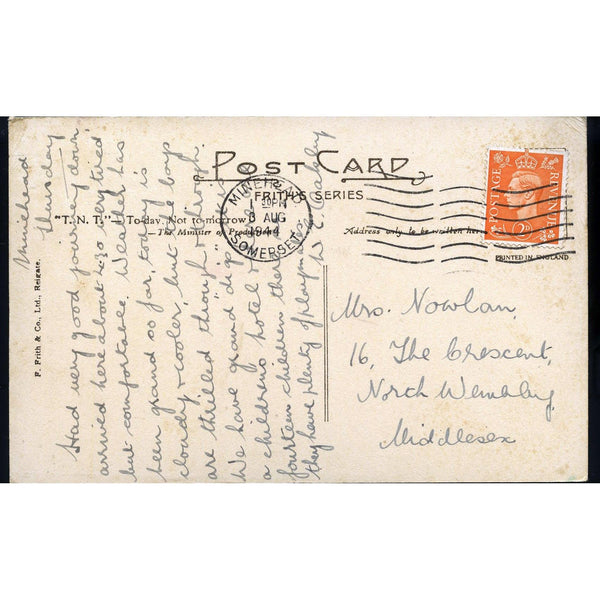 POST CARD
FRITH'S SERIES
"T.N.T."—To-day, Not to-morrow
—The Minister of
Address only to be written
PRINTED IN ENGLAND
F. Frith & Co., Ltd., Reigate.
MINEHEAD
PM
8 AUG
1944
SOMERSET
POSTAGE
REVENUE
2D
Minehead
Thursday
Had very good journey down,
arrived here about very tired
but comfortable. Weather has
been grand so far, today is
cloudy & cooler, but the boys
are thrilled though
We have grand "digs"
a childrens hotel
fourteen children
they have plenty of playmates
Mrs. Nowlan,
16, The Crescent,
North Wembley,
Middlesex